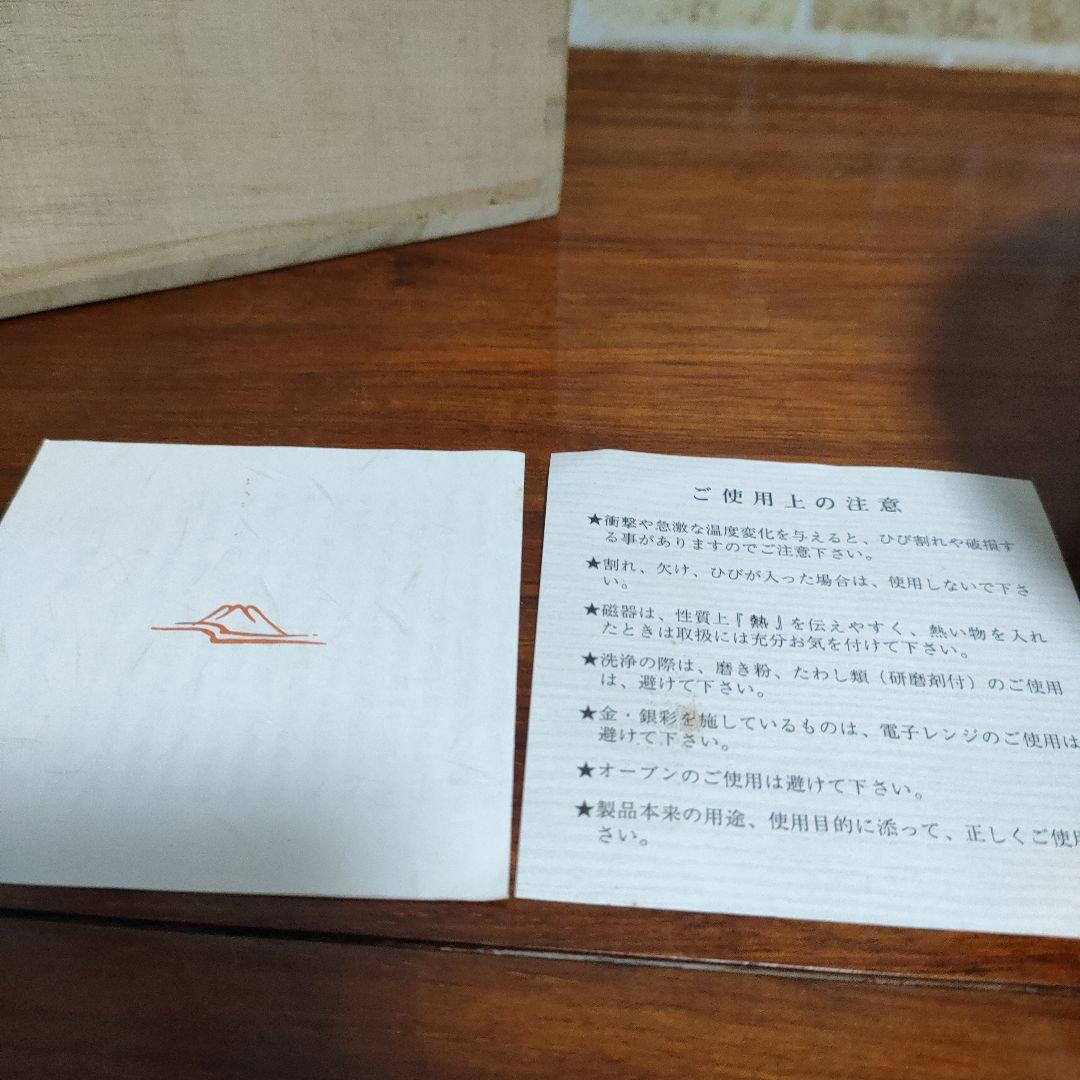 ご使用上の注意
★衝撃や急激な温度変化を与えると、ひび割れや破損す
る事がありますのでご注意下さい。
★割れ、欠け、ひびが入った場合は、使用しないで下さ
い。
★磁器は、性質上『熱』を伝えやすく、熱い物を入れ
たときは取扱には充分お気を付けて下さい。
★洗浄の際は、磨き粉、たわし類（研磨剤付）のご使用
は、避けて下さい。
★金・銀彩を施しているものは、電子レンジのご使用は
避けて下さい。
★オーブンのご使用は避けて下さい。
★製品本来の用途、使用目的に添って、正しくご使用
さい。